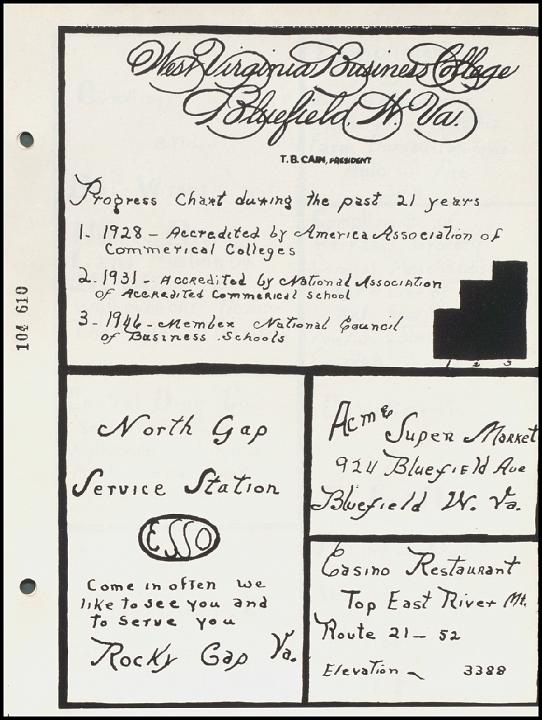 West Virginia Business College
Bluefield, W. Va.
T. B. CAIN, PRESIDENT
Progress Chart during the past 21 years
1- 1928 - Accredited by America Association of
Commerical Colleges
2- 1931 - Accredited by National Association
of Accredited Commerical School
3- 1946 - Member National Council
of Business Schools
1 2 3
104 610
North Gap
Service Station
ESSO
Come in often we
like to see you and
to serve you
Rocky Gap Va.
Acme Super Market
924 Bluefield Ave
Bluefield W. Va.
Casino Restaurant
Top East River Mt.
Route 21 - 52
Elevation ~ 3388